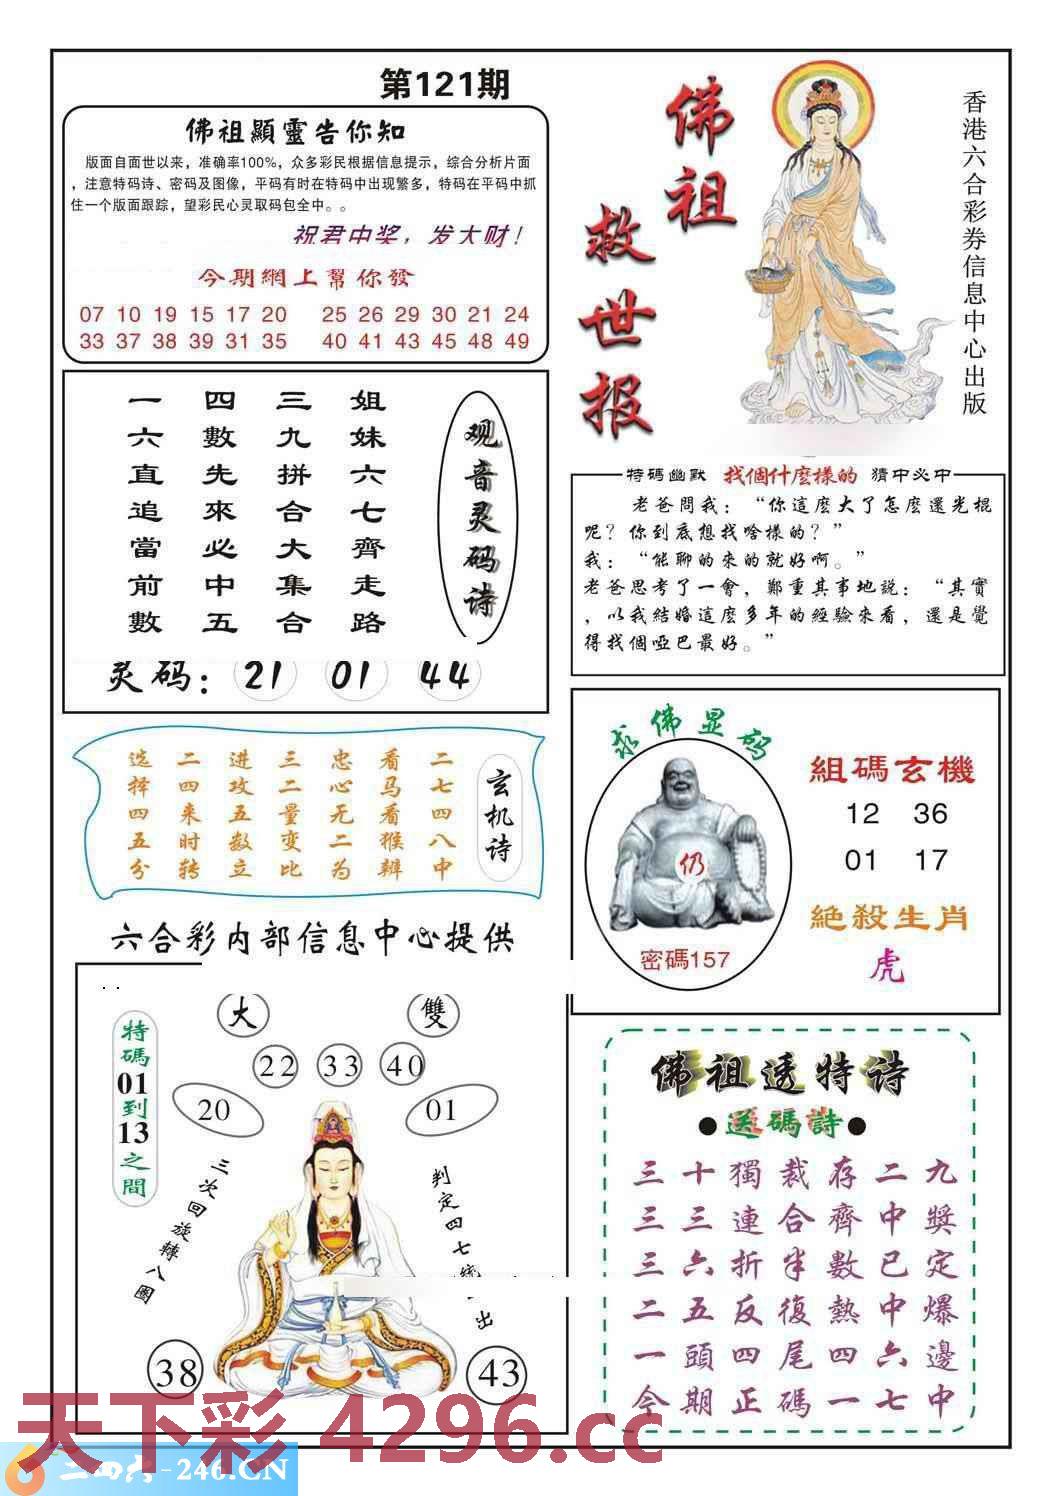 第121期
佛祖顯靈告你知
版面自面世以来，准确率100%，众多彩民根据信息提示，综合分析片面
，注意特码诗、密码及图像，平码有时在特码中出现繁多，特码在平码中抓
住一个版面跟踪，望彩民心灵取码包全中。。
祝君中奖，发大财！
今期網上幫你發
07 10 19 15 17 20 25 26 29 30 21 24
33 37 38 39 31 35 40 41 43 45 48 49
佛祖
救世报
香港六合彩券信息中心出版
观音灵码诗
姐妹六七齊走路
三九拼合大集合
四數先來必中五
一六直追當前數
灵码：21 01 44
特碼幽默 找個什麼樣的 猜中必中
老爸問我：“你這麼大了怎麼還光棍
呢？你到底想找啥樣的？”
我：“能聊的來的就好啊。”
老爸思考了一會，鄭重其事地説：“其實
，以我結婚這麼多年的經驗來看，還是覺
得找個啞巴最好。”
玄机诗
二七四八中
看马看猴辨
忠心无二为
三二量变比
进攻五数立
二四来时转
选择四五分
求佛显码
仍
密碼157
組碼玄機
12 36
01 17
絶殺生肖
虎
六合彩内部信息中心提供
特碼01到13之間
大 雙
22 33 40
20 01
三次回旋轉八圈
判定四七
出
38 43
佛祖透特诗
●送碼詩●
三十獨裁存二九
三三連合齊中獎
三六折半數已定
二五反復熱中爆
一頭四尾四六邊
今期正碼一七中
天下彩 4296.cc
二四六-246.CN